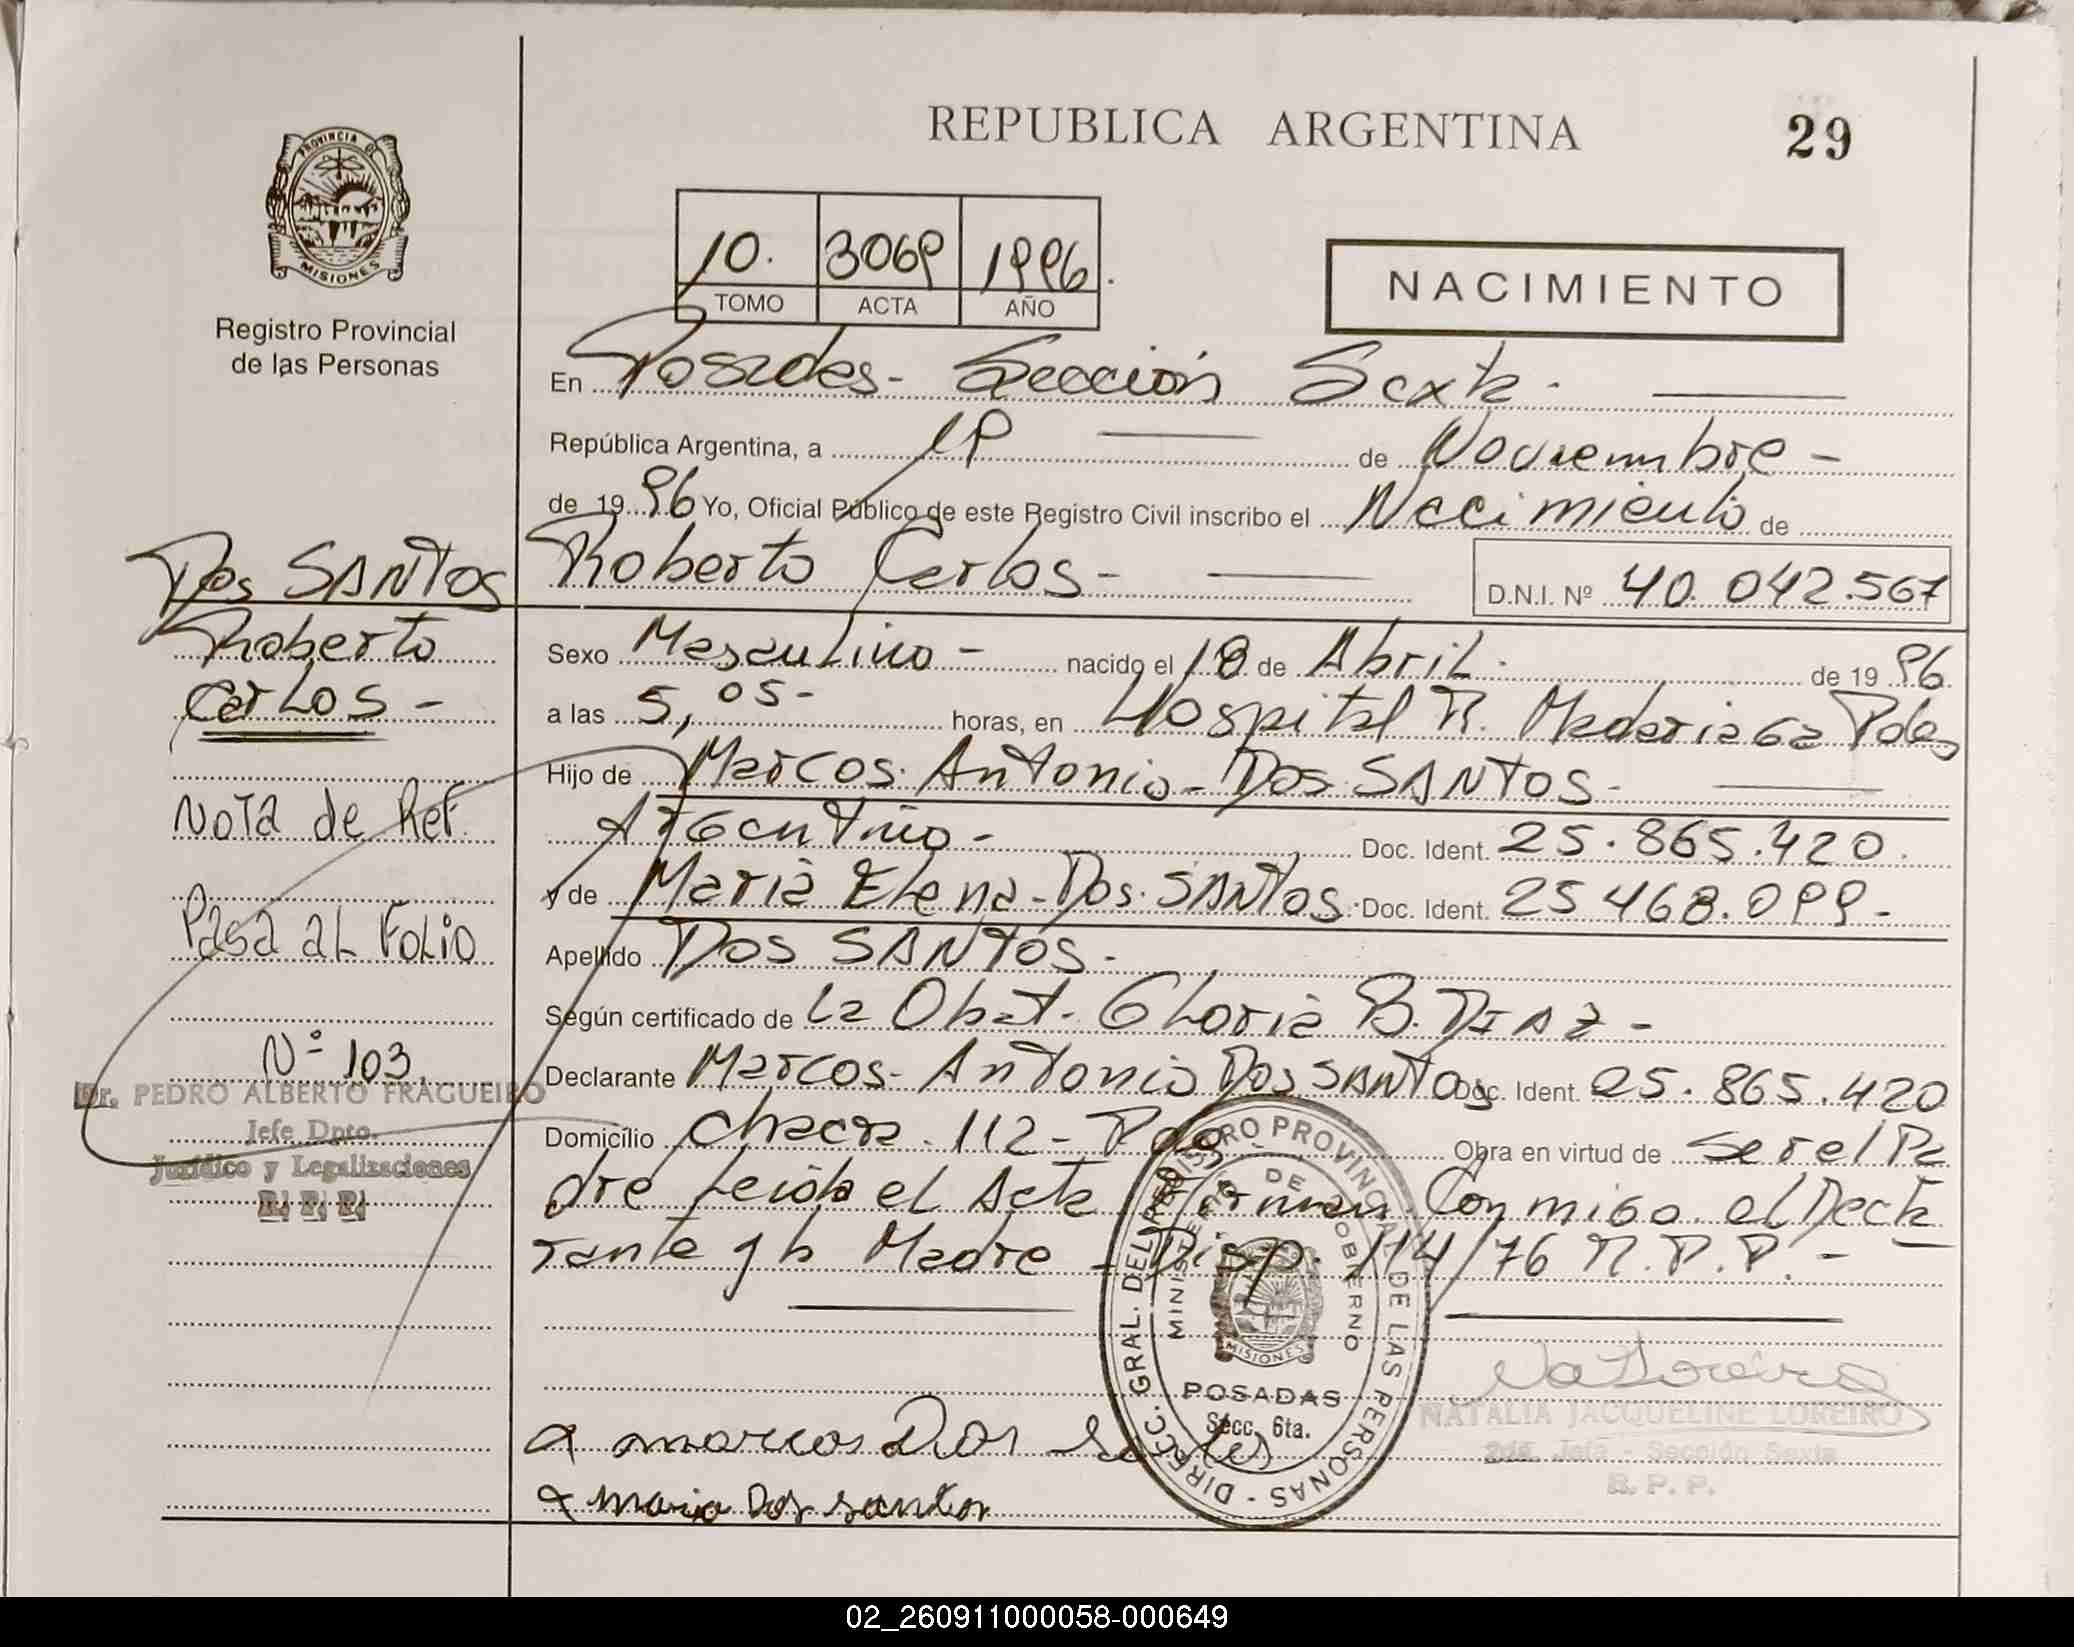 REPUBLICA ARGENTINA
29
PROVINCIA DE
MISIONES
Registro Provincial
de las Personas
10. 3069 1996.
TOMO ACTA AÑO
NACIMIENTO
En Posadas - Sección Sexta.
República Argentina, a 19 de Noviembre -
de 1996 Yo, Oficial Público de este Registro Civil inscribo el Nacimiento de
Roberto Carlos -
D.N.I. Nº 40.042.567
Dos SANTOS
Roberto
Carlos -
Nota de Ref.
Pasa al Folio
Nº 103.
Dr. PEDRO ALBERTO FRAGUEIRO
Jefe Dpto.
Jurídico y Legalizaciones
R. P. P.
Sexo Masculino - nacido el 18 de Abril. de 1996.
a las 5,05- horas, en Hospital R. Madariaga Pdas
Hijo de Marcos Antonio - Dos SANTOS -
Argentino - Doc. Ident. 25.865.420.
y de María Elena - Dos SANTOS. Doc. Ident. 25.468.099 -
Apellido DOS SANTOS -
Según certificado de La Obst. Gloria B. DIAZ -
Declarante Marcos Antonio Dos SANTOS Doc. Ident. 25.865.420
Domicilio Chacra 112 - Pdas Obra en virtud de ser el Pa
dre Leída el Acta Firman Conmigo el Decla
rante y la Madre - Disp. 114/76 R.P.P. -
DIREC. GRAL. DEL REGISTRO PROVINCIAL DE LAS PERSONAS -
MINISTERIO DE GOBIERNO
MISIONES
POSADAS
Secc. 6ta.
NATALIA JACQUELINE LOREIRO
2da. Jefa - Sección Sexta
R. P. P.
marcos Dos santos
maria Dos santos
02_260911000058-000649